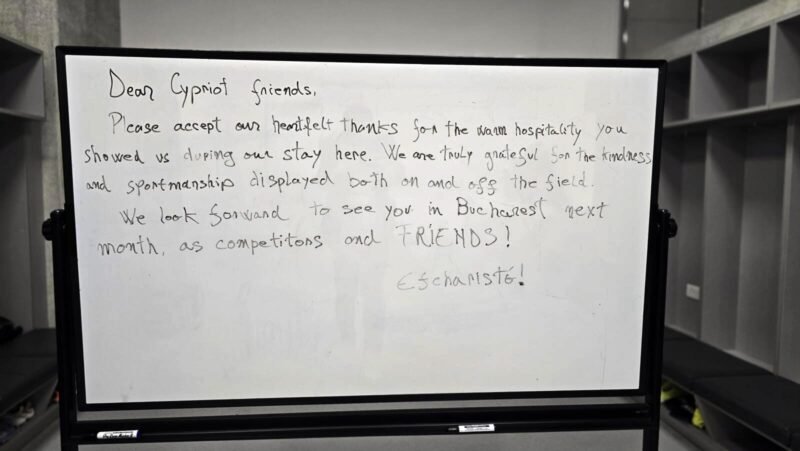 Dear Cypriot friends,
Please accept our heartfelt thanks for the warm hospitality you
showed us during our stay here. We are truly grateful for the kindness
and sportmanship displayed both on and off the field.
We look forward to see you in Bucharest next
month, as competitors and FRIENDS!
Efcharistó!